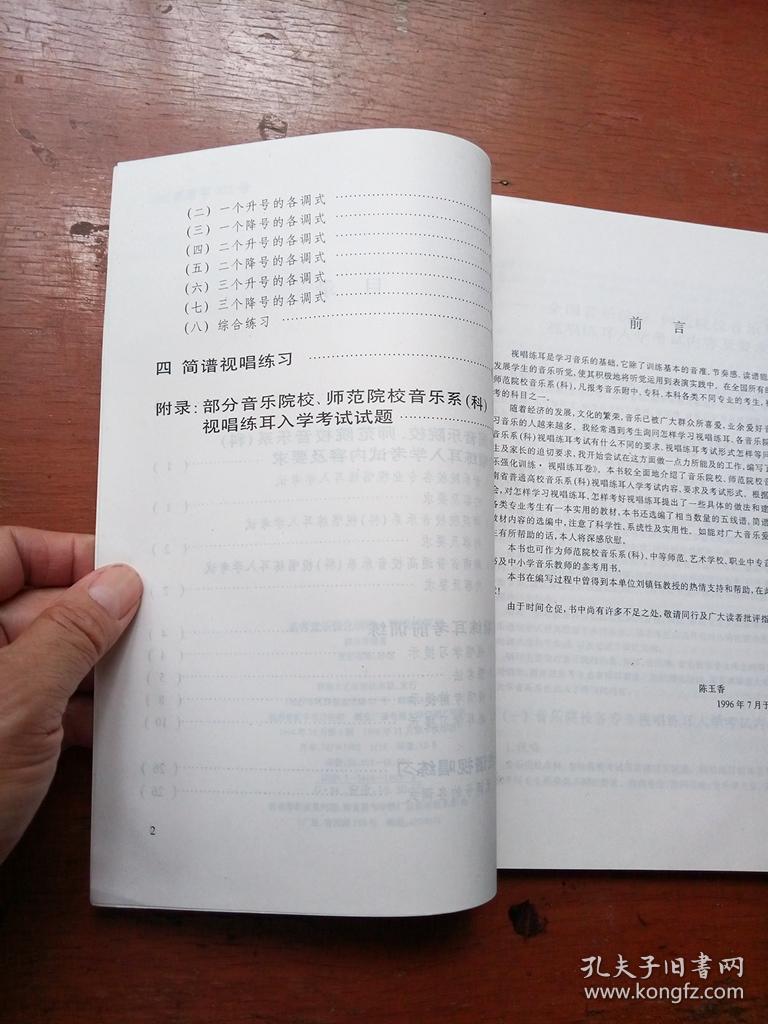 (二) 一个升号的各调式
(三) 一个降号的各调式
(四) 二个升号的各调式
(五) 二个降号的各调式
(六) 三个升号的各调式
(七) 三个降号的各调式
(八) 综合练习
四 简谱视唱练习
附录: 部分音乐院校、师范院校音乐系(科)
视唱练耳入学考试试题
2
前 言
视唱练耳是学习音乐的基础,它除了训练基本的音准、节奏感、读谱能
发展学生的音乐听觉,使其积极地将听觉运用到表演实践中。在全国所有的
师范院校音乐系(科),凡报考音乐附中、专科、本科各类不同专业的考生,
考的科目之一。
随着经济的发展,文化的繁荣,音乐已被广大群众所喜爱,业余爱好音
习音乐的人越来越多。我经常遇到考生询问怎样学习视唱练耳、各音乐院
音乐系(科)视唱练耳考试有什么不同的要求、视唱练耳考试形式怎样等问
生及家长的迫切要求,我开始尝试在这方面做一点力所能及的工作,编写了
乐强化训练·视唱练耳卷》。本书较全面地介绍了音乐院校、师范院校音
南省普通高校音乐系(科)视唱练耳入学考试内容、要求及考试形式。根据
会,对怎样学习视唱练耳、怎样考好视唱练耳提出了一些具体的做法和建
各类专业考生有一本实用的教材,本书还选编了相当数量的五线谱、简
教材内容的选编中,注意了科学性、系统性及实用性。如能对广大音乐爱
生有所帮助的话,本人将深感欣慰。
本书也可作为师范院校音乐系(科)、中等师范、艺术学校、职业中专音
书及中小学音乐教师的参考用书。
本书在编写过程中曾得到本单位刘镇钰教授的热情支持和帮助,在此
!
由于时间仓促,书中尚有许多不足之处,敬请同行及广大读者批评指
陈玉香
1996年7月于
孔夫子旧书网
www.kongfz.com